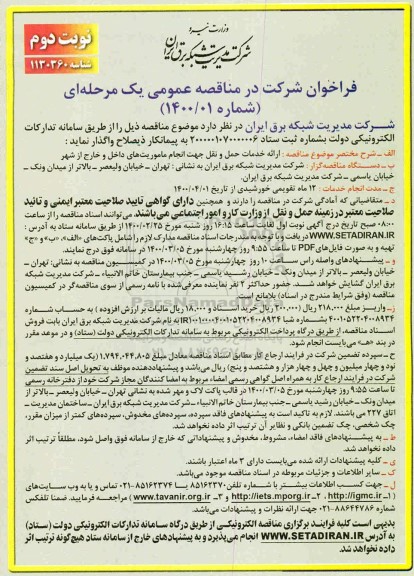 وزارت نیرو
شرکت مدیریت شبکه برق ایران
نوبت دوم
شناسه ۱۱۳۰۳۶۰
فراخوان شرکت در مناقصه عمومی یک مرحله‌ای
(شماره ۱۴۰۰/۰۱)
شرکت مدیریت شبکه برق ایران در نظر دارد موضوع مناقصه ذیل را از طریق سامانه تدارکات
الکترونیکی دولت بشماره ثبت ستاد ۲۰۰۰۰۰۱۰۷۰۰۰۰۰۰۶ به پیمانکار ذیصلاح واگذار نماید:
الف – شرح مختصر موضوع مناقصه : ارائه خدمات حمل و نقل جهت انجام ماموریت‌های داخل و خارج از شهر
ب – دستگاه مناقصه‌گزار: شرکت مدیریت شبکه برق ایران به نشانی: تهران – خیابان ولیعصر – بالاتر از میدان ونک –
خیابان یاسمی – شرکت مدیریت شبکه برق ایران.
ج – مدت انجام خدمات : ۱۲ ماه تقویمی خورشیدی از تاریخ ۱۴۰۰/۰۴/۰۱
د – متقاضیانی که آمادگی شرکت در مناقصه را دارند و همچنین دارای گواهی تایید صلاحیت معتبر ایمنی و تائید
صلاحیت معتبر در زمینه حمل و نقل از وزارت کار و امور اجتماعی می‌باشند. می‌توانند اسناد مناقصه را از ساعت
۰۸:۰۰ صبح تاریخ درج آگهی نوبت اول لغایت ساعت ۱۶:۱۵ روز شنبه مورخ ۱۴۰۰/۰۲/۲۵ از طریق سامانه ستاد به آدرس :
WWW.SETADIRAN.IR دریافت و
تهیه و به صورت فایل‌های PDF تا ساعت ۹:۵۵ روز چهارشنبه مورخ ۱۴۰۰/۰۳/۰۵ در سامانه فوق درج نمایند.
و – پیشنهادهای واصله راس ساعت ۱۰ روز چهارشنبه مورخ ۱۴۰۰/۰۳/۰۵ در کمیسیون مناقصه به نشانی: تهران –
خیابان ولیعصر – بالاتر از میدان ونک – خیابان رشید یاسمی – جنب بیمارستان خاتم‌الانبیاء – شرکت مدیریت شبکه
برق ایران گشایش خواهد شد. حضور حداکثر ۲ نفر نماینده معرفی‌شده با نامه رسمی از سوی مناقصه‌گر در کمیسیون
مناقصه (وفق شرایط مندرج در اسناد) بلامانع است.
ز – واریز مبلغ ۲۱۸.۰۰۰ ریال (۲۰۰.۰۰۰ ریال خرید اسناد و ۱۸.۰۰۰ ریال مالیات بر ارزش افزوده) به حساب شماره
بنام شرکت مدیریت شبکه برق ایران بابت فروش
اسناد مناقصه، از طریق درگاه پرداخت الکترونیکی مربوط به سامانه تدارکات الکترونیکی دولت (ستاد) و در موعد مقرر
در بند «هـ» می‌بایست انجام شود.
ح – سپرده تضمین شرکت در فرایند ارجاع کار مطابق اسناد مناقصه معادل مبلغ ۱.۷۹۴.۰۴۴.۸۰۵ ریال (یک میلیارد و هفتصد و
نود و چهار میلیون و چهل و چهار هزار و هشتصد و پنج) ریال می‌باشد و پیشنهاددهنده موظف به تحویل اصل سند تضمین
شرکت در فرایند ارجاع کار به همراه اصل گواهی رسمی امضاء مربوط به امضا کنندگان مجاز شرکت خود از دفترخانه رسمی
تا ساعت ۹:۵۵ روز چهارشنبه مورخ ۱۴۰۰/۰۳/۰۵ در قالب پاکت لاک و مهر شده به نشانی تهران – خیابان ولیعصر – بالاتر از
میدان ونک – خیابان رشید یاسمی – جنب بیمارستان خاتم‌الانبیاء – شرکت مدیریت شبکه برق ایران – ساختمان مدیریت –
اتاق ۲۲۷ می باشند. لازم به تاکید است به پیشنهادهای فاقد سپرده، سپرده‌های مخدوش، سپرده‌های کمتر از میزان مقرر،
چک شخصی، چک تضمین بانکی و نظایر آن ترتیب اثر داده نخواهد شد.
ط – به پیشنهادهای فاقد امضاء، مشروط، مخدوش و پیشنهاداتی که خارج از سامانه فوق واصل شود، مطلقاً ترتیب اثر
داده نخواهد شد.
ی – کلیه پیشنهادات ارائه شده می‌بایست دارای ۳ ماه اعتبار باشند.
ک – سایر اطلاعات و جزئیات مربوطه در اسناد مناقصه موجود می‌باشد.
ل – جهت کسب اطلاعات بیشتر با شماره تلفن ۸۵۱۶۲۳۷۰ یا نمابر ۸۵۱۶۲۳۷۴-۰۲۱ تماس و یا به وب سایت‌های
(۱ـ http://igmc.ir ، ۲ـ http://iets.mporg.ir و ۳ـ www.tavanir.org.ir) مراجعه فرمایید. ضمنا تلفکس
۸۸۶۴۴۷۸۶-۰۲۱ جهت ارائه نظرات و پیشنهادات می‌باشد.
بدیهی است کلیه فرایند برگزاری مناقصه الکترونیکی از طریق درگاه سامانه تدارکات الکترونیکی دولت (ستاد)
به آدرس WWW.SETADIRAN.IR انجام می‌پذیرد و به پیشنهادهای خارج از سامانه ستاد هیچ‌گونه ترتیب اثر
داده نخواهد شد.